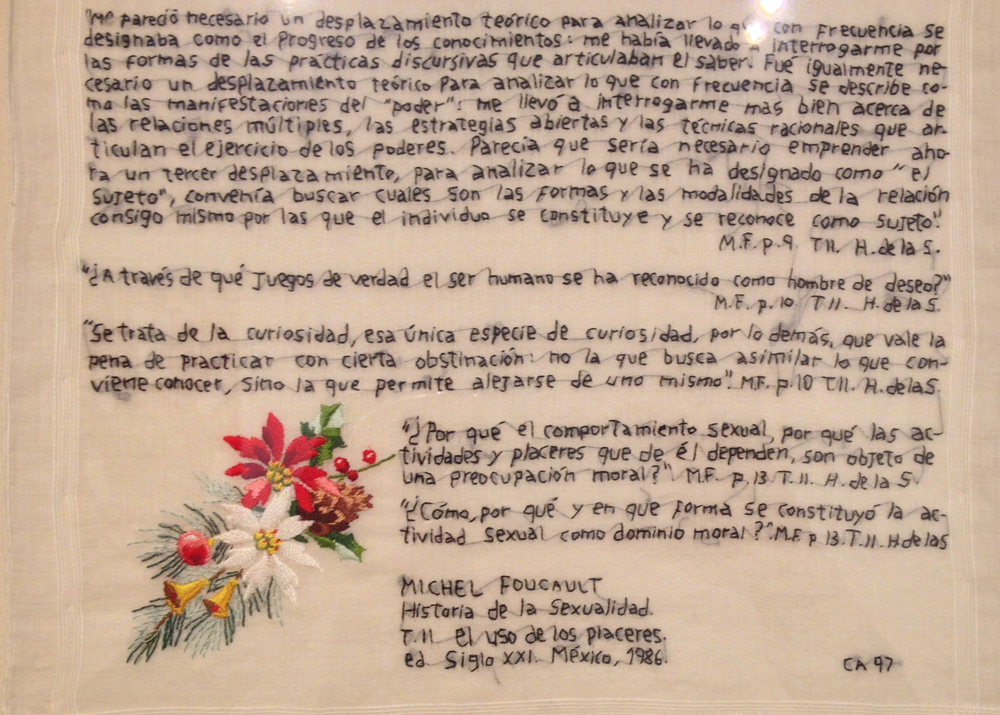 "Me pareció necesario un desplazamiento teórico para analizar lo que con frecuencia se
designaba como el progreso de los conocimientos: me había llevado a interrogarme por
las formas de las prácticas discursivas que articulaban el saber. Fué igualmente ne-
cesario un desplazamiento teórico para analizar lo que con frecuencia se describe co-
mo las manifestaciones del "poder": me llevó a interrogarme mas bien acerca de
las relaciones múltiples, las estrategias abiertas y las técnicas racionales que ar-
ticulan el ejercicio de los poderes. Parecía que sería necesario emprender aho-
ra un tercer desplazamiento, para analizar lo que se ha designado como "el
sujeto", convenía buscar cuales son las formas y las modalidades de la relación
consigo mismo por las que el individuo se constituye y se reconoce como sujeto".
M.F. p. 9. T II. H. de la S.
"¿A través de qué juegos de verdad el ser humano se ha reconocido como hombre de deseo?"
M.F. p. 10 T II. H. de la S.
"Se trata de la curiosidad, esa única especie de curiosidad, por lo demás, que vale la
pena de practicar con cierta obstinación: no la que busca asimilar lo que con-
viene conocer, sino la que permite alejarse de uno mismo". M.F. p. 10 T. II. H. de la S.
"¿Por qué el comportamiento sexual, por qué las ac-
tividades y placeres que de él dependen, son objeto de
una preocupación moral?" M.F. p. 13. T. II. H. de la S.
"¿Cómo, por qué y en que forma se constituyó la ac-
tividad sexual como dominio moral?". M.F. p 13. T. II. H. de la S
MICHEL FOUCAULT
Historia de la Sexualidad.
T. II el uso de los placeres.
ed. Siglo XXI. México, 1986.
CA 97